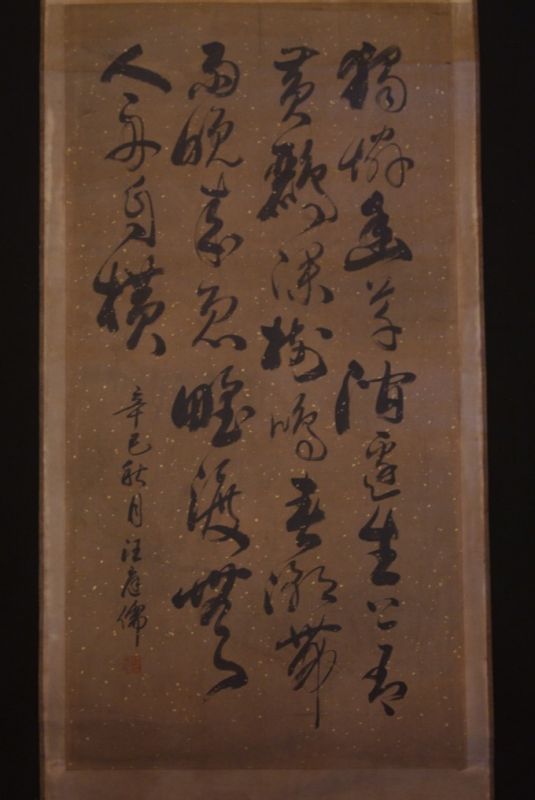 獨憐幽草澗邊生上有
黃鸝深樹鳴春潮帶
雨晚來急野渡無
人舟自橫
辛巳秋月汪儒